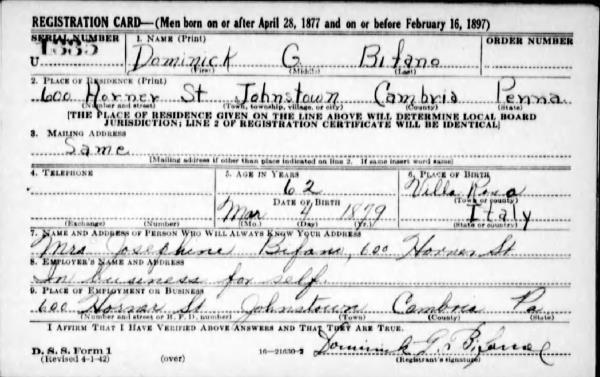 REGISTRATION CARD—(Men born on or after April 28, 1877 and on or before February 16, 1897)
SERIAL NUMBER 1. NAME (Print) ORDER NUMBER
U 1335 Dominick G Bifano
(First) (Middle) (Last)
2. PLACE OF RESIDENCE (Print)
600 Horner St Johnstown Cambria Penna
(Number and street) (Town, township, village, or city) (County) (State)
[THE PLACE OF RESIDENCE GIVEN ON THE LINE ABOVE WILL DETERMINE LOCAL BOARD
JURISDICTION; LINE 2 OF REGISTRATION CERTIFICATE WILL BE IDENTICAL]
3. MAILING ADDRESS
Same
[Mailing address if other than place indicated on line 2. If same insert word same]
4. TELEPHONE 5. AGE IN YEARS 6. PLACE OF BIRTH
62 Villa Rosa
DATE OF BIRTH (Town or county)
Mar 4 1879 Italy
(Exchange) (Number) (Mo.) (Day) (Yr.) (State or country)
7. NAME AND ADDRESS OF PERSON WHO WILL ALWAYS KNOW YOUR ADDRESS
Mrs Josephine Bifano, 600 Horner St
8. EMPLOYER'S NAME AND ADDRESS
In business for self.
9. PLACE OF EMPLOYMENT OR BUSINESS
600 Horner St Johnstown Cambria Pa
(Number and street or R. F. D. number) (Town) (County) (State)
I AFFIRM THAT I HAVE VERIFIED ABOVE ANSWERS AND THAT THEY ARE TRUE.
D. S. S. Form 1 Dominick G. Bifano
(Revised 4-1-42) (over) 16—21630-2 (Registrant's signature)